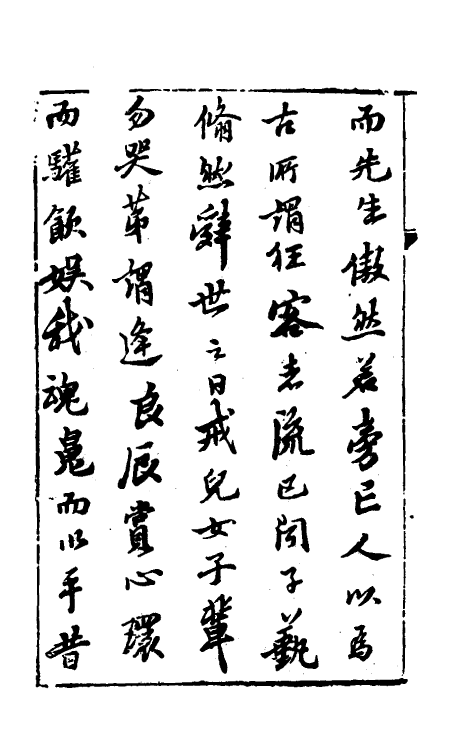 而先生傲然若旁已人以為
古所謂狂客者流已聞子藝
翛然辭世之日戒兒女子輩
勿哭第謂逢良辰賞心環
而驩飲娛我魂鬼而以平昔